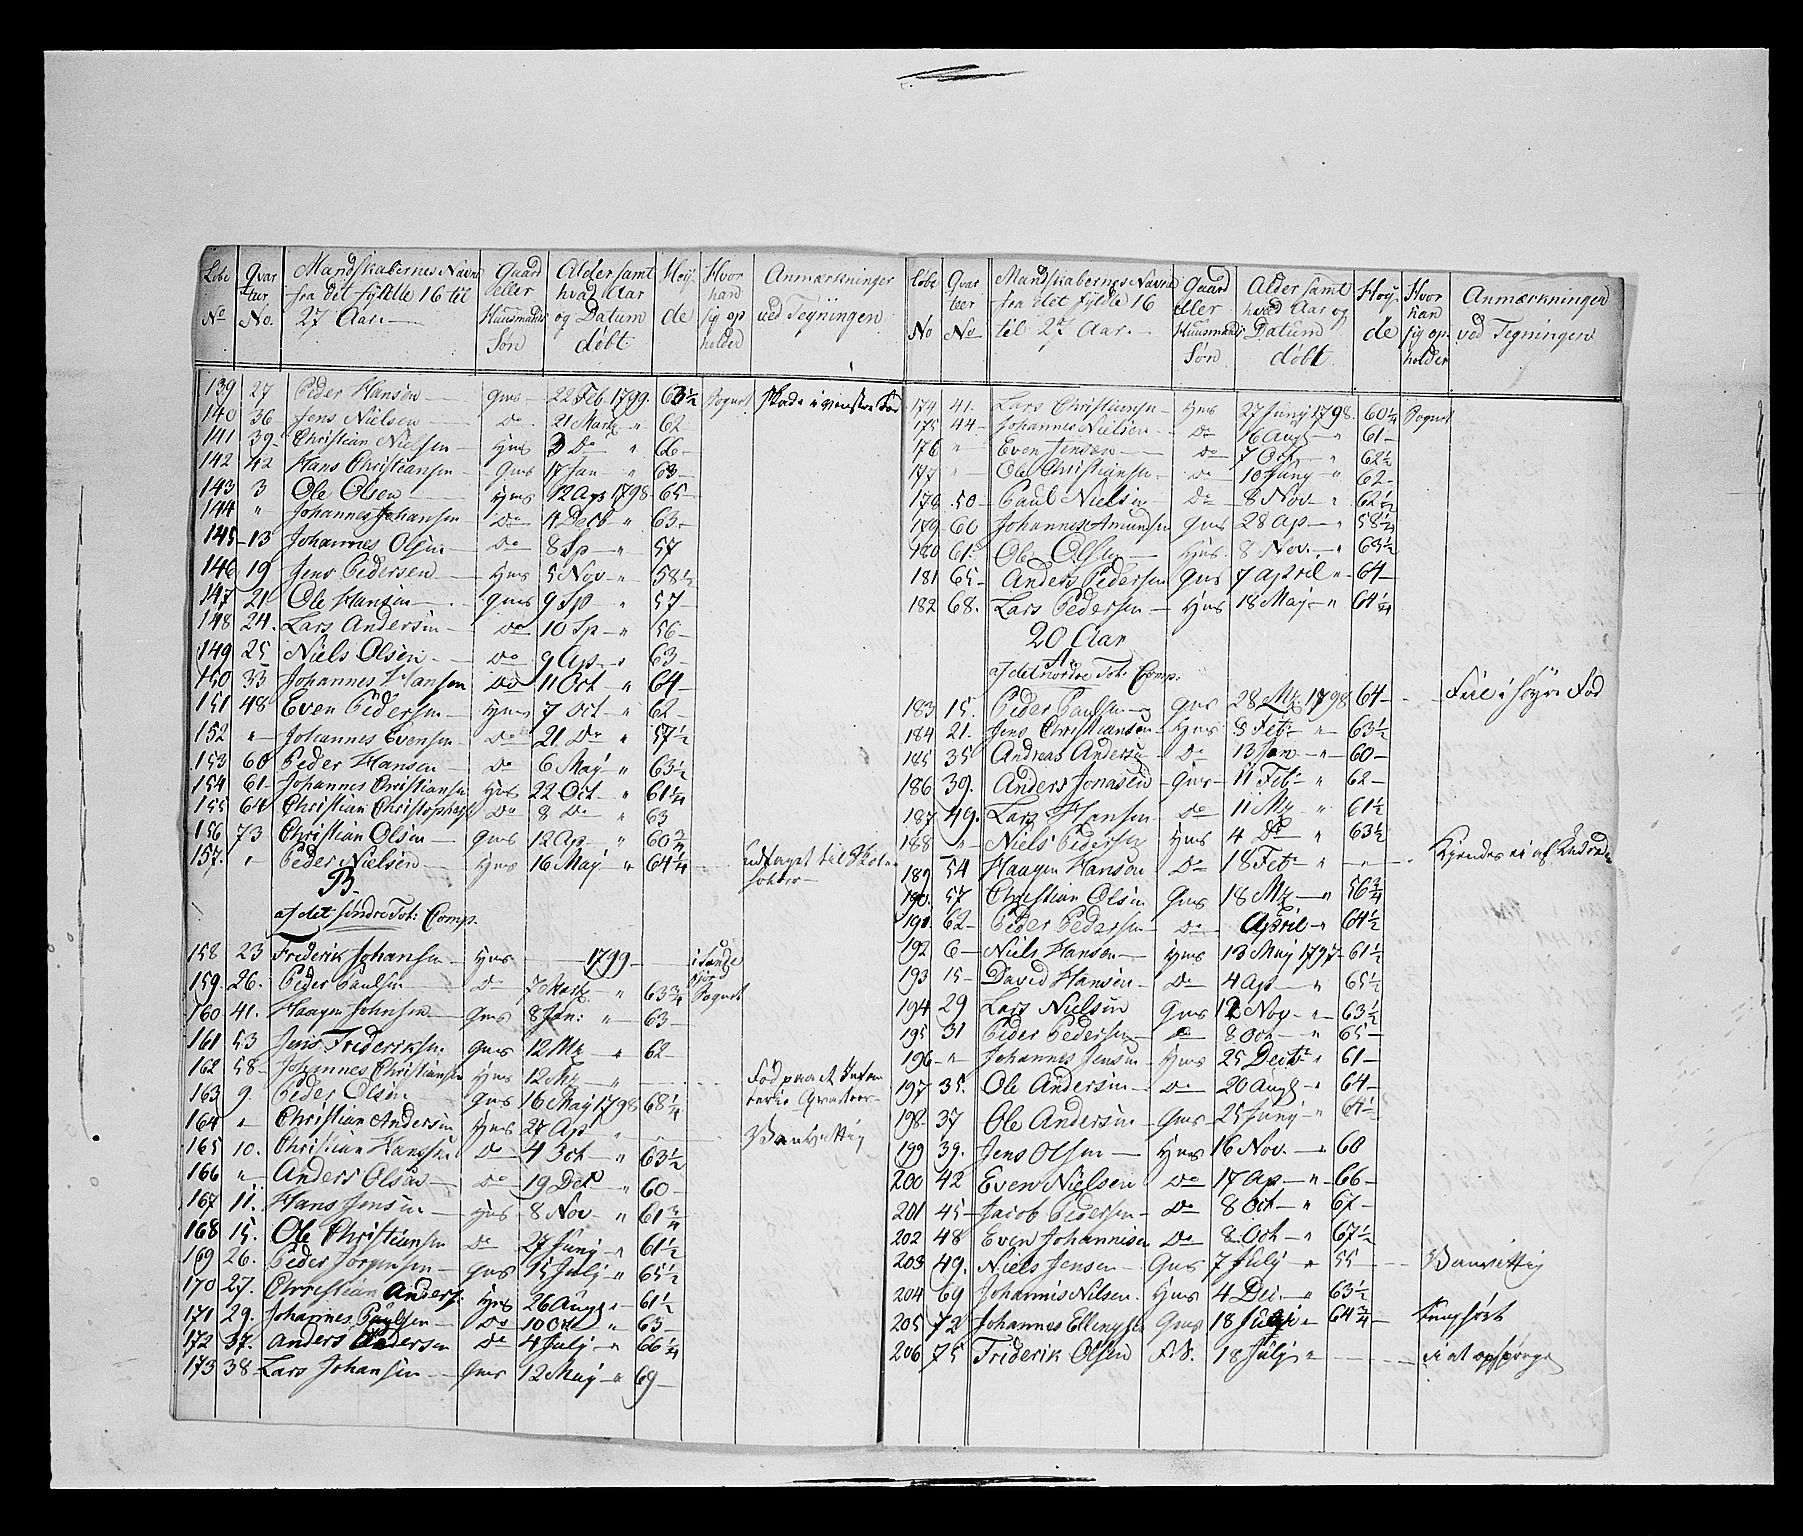 Løbe No | Qvar tier No. | Mandskabernes Navne fra det fyldte 16 til 27 Aar. | Gaard eller Huusmands Søn | Alder samt hvad Aar og Datum døbt | Høy- de | Hvor han sig op holder | Anmærkninger ved Tegningen
139 27 Peder Hansen Gms 22 Feb. 1799. 63½ Sognet Skade i venstre Fod
140 36 Jens Nielsen Do 21 Martz " 62
141 39. Christian Nielsen Hms 3 Do " 66
142 42 Hans Christiansen Gms 17 Jan " 63
143 3 Ole Olsen Hms 12 Apr 1798 65
144 " Johannes Johansen Do 4 Decb " 63
145 13 Johannes Olsen Do 8 Sp " 57
146 19 Jens Pedersen Hms 5 Nov " 58½
147 21 Ole Hansen Gms 9 Sp " 57
148 24. Lars Andersen Do 10 Sp " 56
149 25 Niels Olsen Do 9 Ap " 63
150 33 Johannes Hansen Do 11 Oct " 64
151 48 Even Pedersen Hms 7 Oct " 62
152 " Johannes Evensen Do 21 Do " 57½
153 60 Peder Hansen Do 6 Maj " 63½
154 61 Johannes Christiansen Hms 22 Oct " 61¼
155 64 Christian Christophers Do 8 Do " 63
156 73 Christian Olsen Gms 12 Ap " 60¾
157. " Peder Nielsen Hms 16 Maj " 64¼ udtaget til
B.
af det søndre Tot: Comp.
158 23 Frederik Johansen Hms 1799 i Sande fjord
159. 26. Peder Paulsen Do 7 Martz " 63¾ Sognet
160 41. Haagen Johnsen Gms 8 Jan: " 63
161 53 Jens Frideriksen Gms 12 Mtz " 62
162 58 Johannes Christiansen Hms 12 Mtz " Fød paa et Infan
163 9. Peder Olsen Gms 16 Maj 1798 68¼ terie Qvarteer
164 " Christian Andersen Hms 27 Ap " Vanvittig
165 10. Christian Hanssen Do 4 Oct " 63½
166 " Anders Olsen Do 19 Dec " 60
167 11. Hans Jensen Hms 8 Nov " 61¾
168 15. Ole Christiansen Do 27 Junj " 61½
169 26. Peder Jørgensen Gms 15 Julj " 65½
170 27. Christian Anders. Hms 26 Aug " 61½
171 29. Johannes Paulsen Do 10 Oct " 63
172 37. Anders Pedersen Do 4 Julj " 66¼
173 38 Lars Johansen Gms 12 Maj " 69
Løbe No | Qvar teer No | Mandskabernes Navne fra det fyldte 16 til 27 Aar. | Gaard eller Huusmands Søn | Alder samt hvad Aar og Datum døbt | Høy- de | Hvor han sig op- holder | Anmærkninger ved Tegningen
174 41. Lars Christiansen Hms 27 Junj 1798. 60½ Sognet
175 44 Johannes Nielsen Do 16 Aug " 61
176 " Even Jensen Do 7 Oct " 62½
177 " Ole Christiansen Do 10 Junj " 62
178 50 Paul Nielsen Do 8 Nov " 62½
179 60 Johannes Amundsen Gms 28 Ap " 58½
180 61. Ole Olsen Hms. 8 Nov. " 63½
181 65 Anders Pedersen Gms 7 April " 64
182 68. Lars Pedersen Hms 18 Maj " 64¼
20 Aar
A.
af det nordre Tot: Comp:
183 15. Peder Paulsen Gms 28 Mtz 1798 64 Feil i høyre Fod
184 21. Jens Christiansen Hms 3 Feb " 63½
185 35 Andreas Andersen Do 13 Jan " 60
186 39. Anders Jonasen Gms 11 Feb " 62
187 49. Lars Hansen Do 11 Mtz " 61½
188 " Niels Pedersen Hms 4 Do " 63½
189 54 Haagen Hansen Do 18 Feb " " Kjendes ei af
190. 57 Christian Olsen Gms 18 Mtz " 56¾
191 62 Peder Pedersen Do April " 64½
192 6 Niels Hansen Hms 13 Maj 1797 61½
193 15 David Hansen Do 4 Ap " 65½
194 29 Lars Nielsen Gms 12 Nov " 63½
195 31 Peder Pedersen Do 8 Oct " 65
196 " Johannes Jensen Hms 25 Decb " 61
197 35. Ole Andersen Do 20 Aug " 64
198 37 Ole Andersen Gms 25 Junj " 64½
199 39. Jens Olsen Hms 16 Nov. " 60
200 42 Even Nielsen Do 17 Ap " 66
201 45 Jacob Pedersen Do 8 Oct " 61
202 48 Even Johannesen Do 8 Oct " 67½
203 49. Niels Jensen Gms 7 Julj " 55 Vanvittig
204 69 Johannis Nilsen. Hms 4 Dec. " 63½
205 72 Johannes Ellingsen Gms 18 " 64¾
206 75 Friderik Olsen F.S. 18 Julj " ei at opspørge